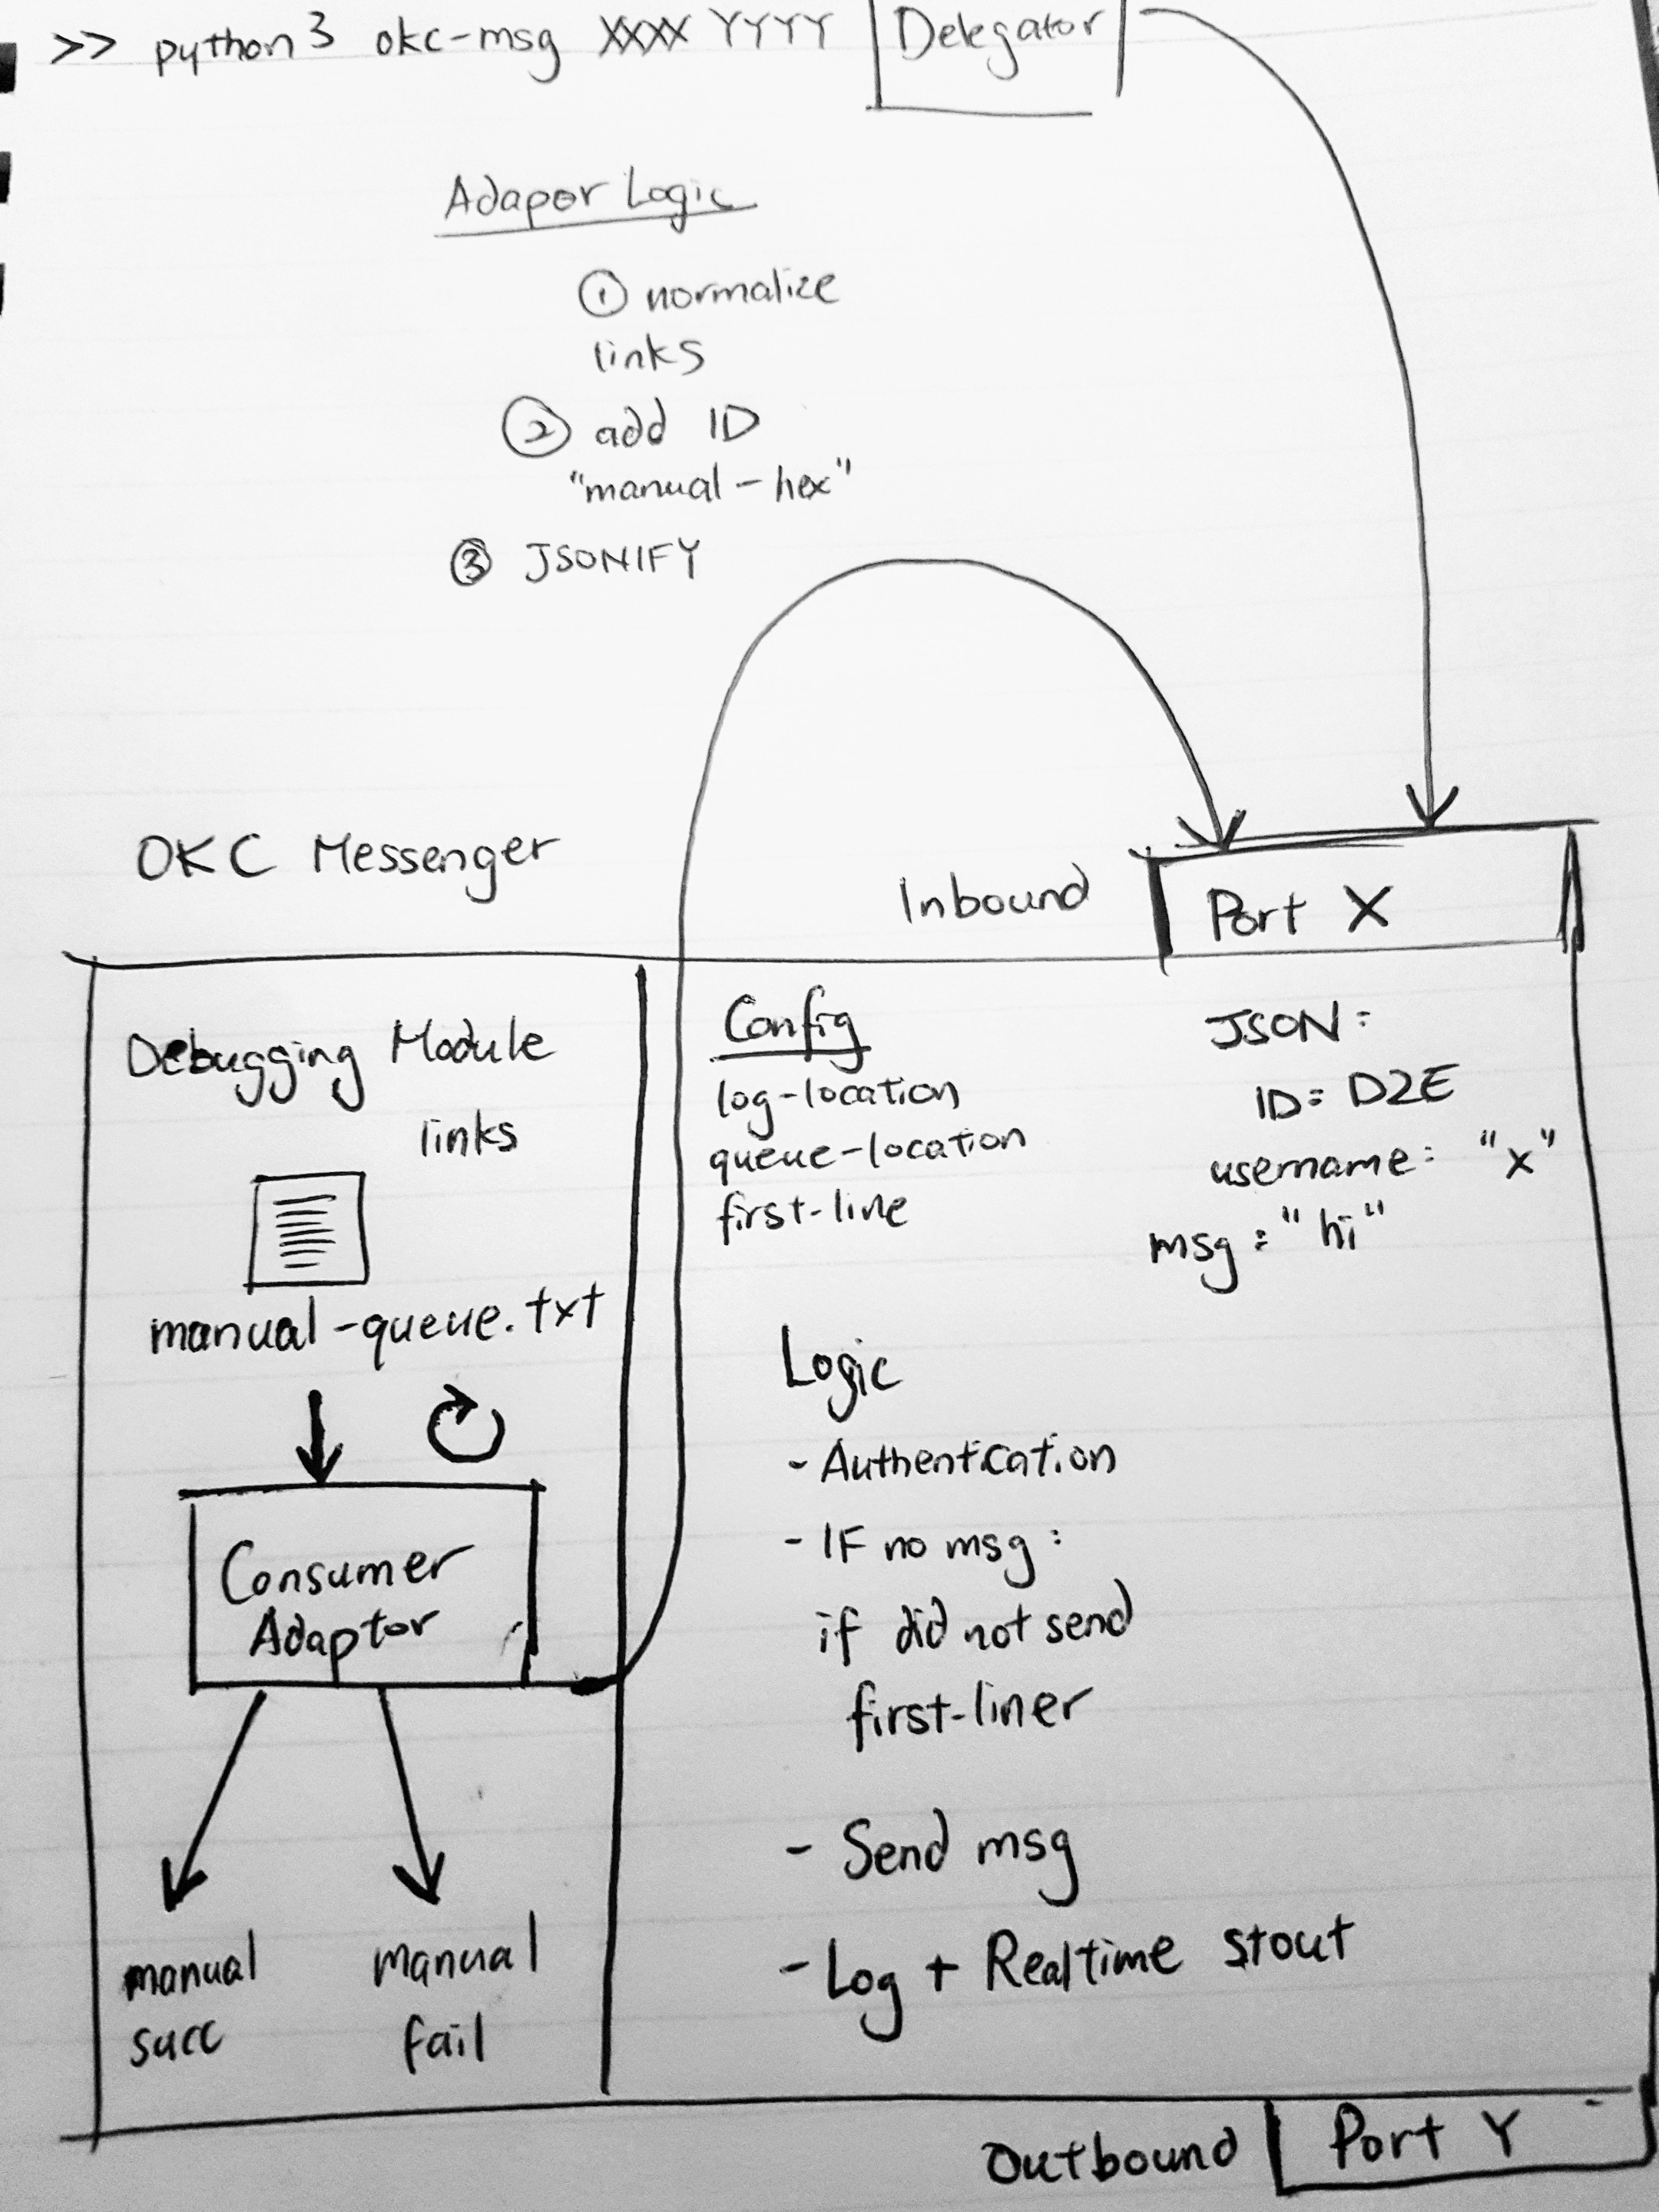 >> python3 okc-msg XXXX YYYY Delegator
Adapor Logic
① normalize
links
② add ID
"manual-hex"
③ JSONIFY
OKC Messenger
Inbound
Port X
Debugging Module
links
manual-queue.txt
Consumer
Adaptor
manual
succ
manual
fail
Config
log-location
queue-location
first-line
JSON:
ID: D2E
username: "x"
msg: "hi"
Logic
- Authentication
- IF no msg:
if did not send
first-liner
- Send msg
- Log + Realtime stout
Outbound
Port Y